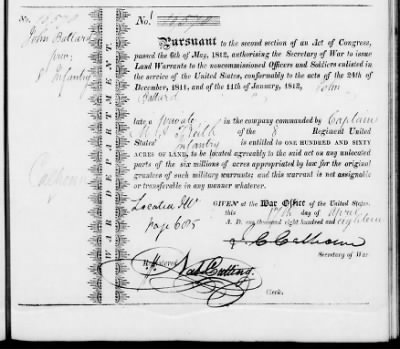 No.
John Ballard
8 Infantry
Calhoun
WAR DEPARTMENT.
No.
Pursuant to the second section of an Act of Congress,
passed the 6th of May, 1812, authorising the Secretary of War to issue
Land Warrants to the noncommissioned Officers and Soldiers enlisted
in the service of the United States, conformably to the acts of the 24th of
December, 1811, and of the 11th of January, 1812, John
Ballard
late a private in the company commanded by Captain
of the 8 Regiment United
States' Infantry is entitled to ONE HUNDRED AND SIXTY
ACRES OF LAND, to be located agreeably to the said act on any unlocated
parts of the six millions of acres appropriated by law for the original
grantees of such military warrants; and this warrant is not assignable
or transferable in any manner whatever.
Located
Page 605
GIVEN at the War Office of the United States,
this day of April
A. D. one thousand eight hundred and eighteen
J. C. Calhoun
Secretary of War.
Registered
Nat. Cutting.
Clerk.